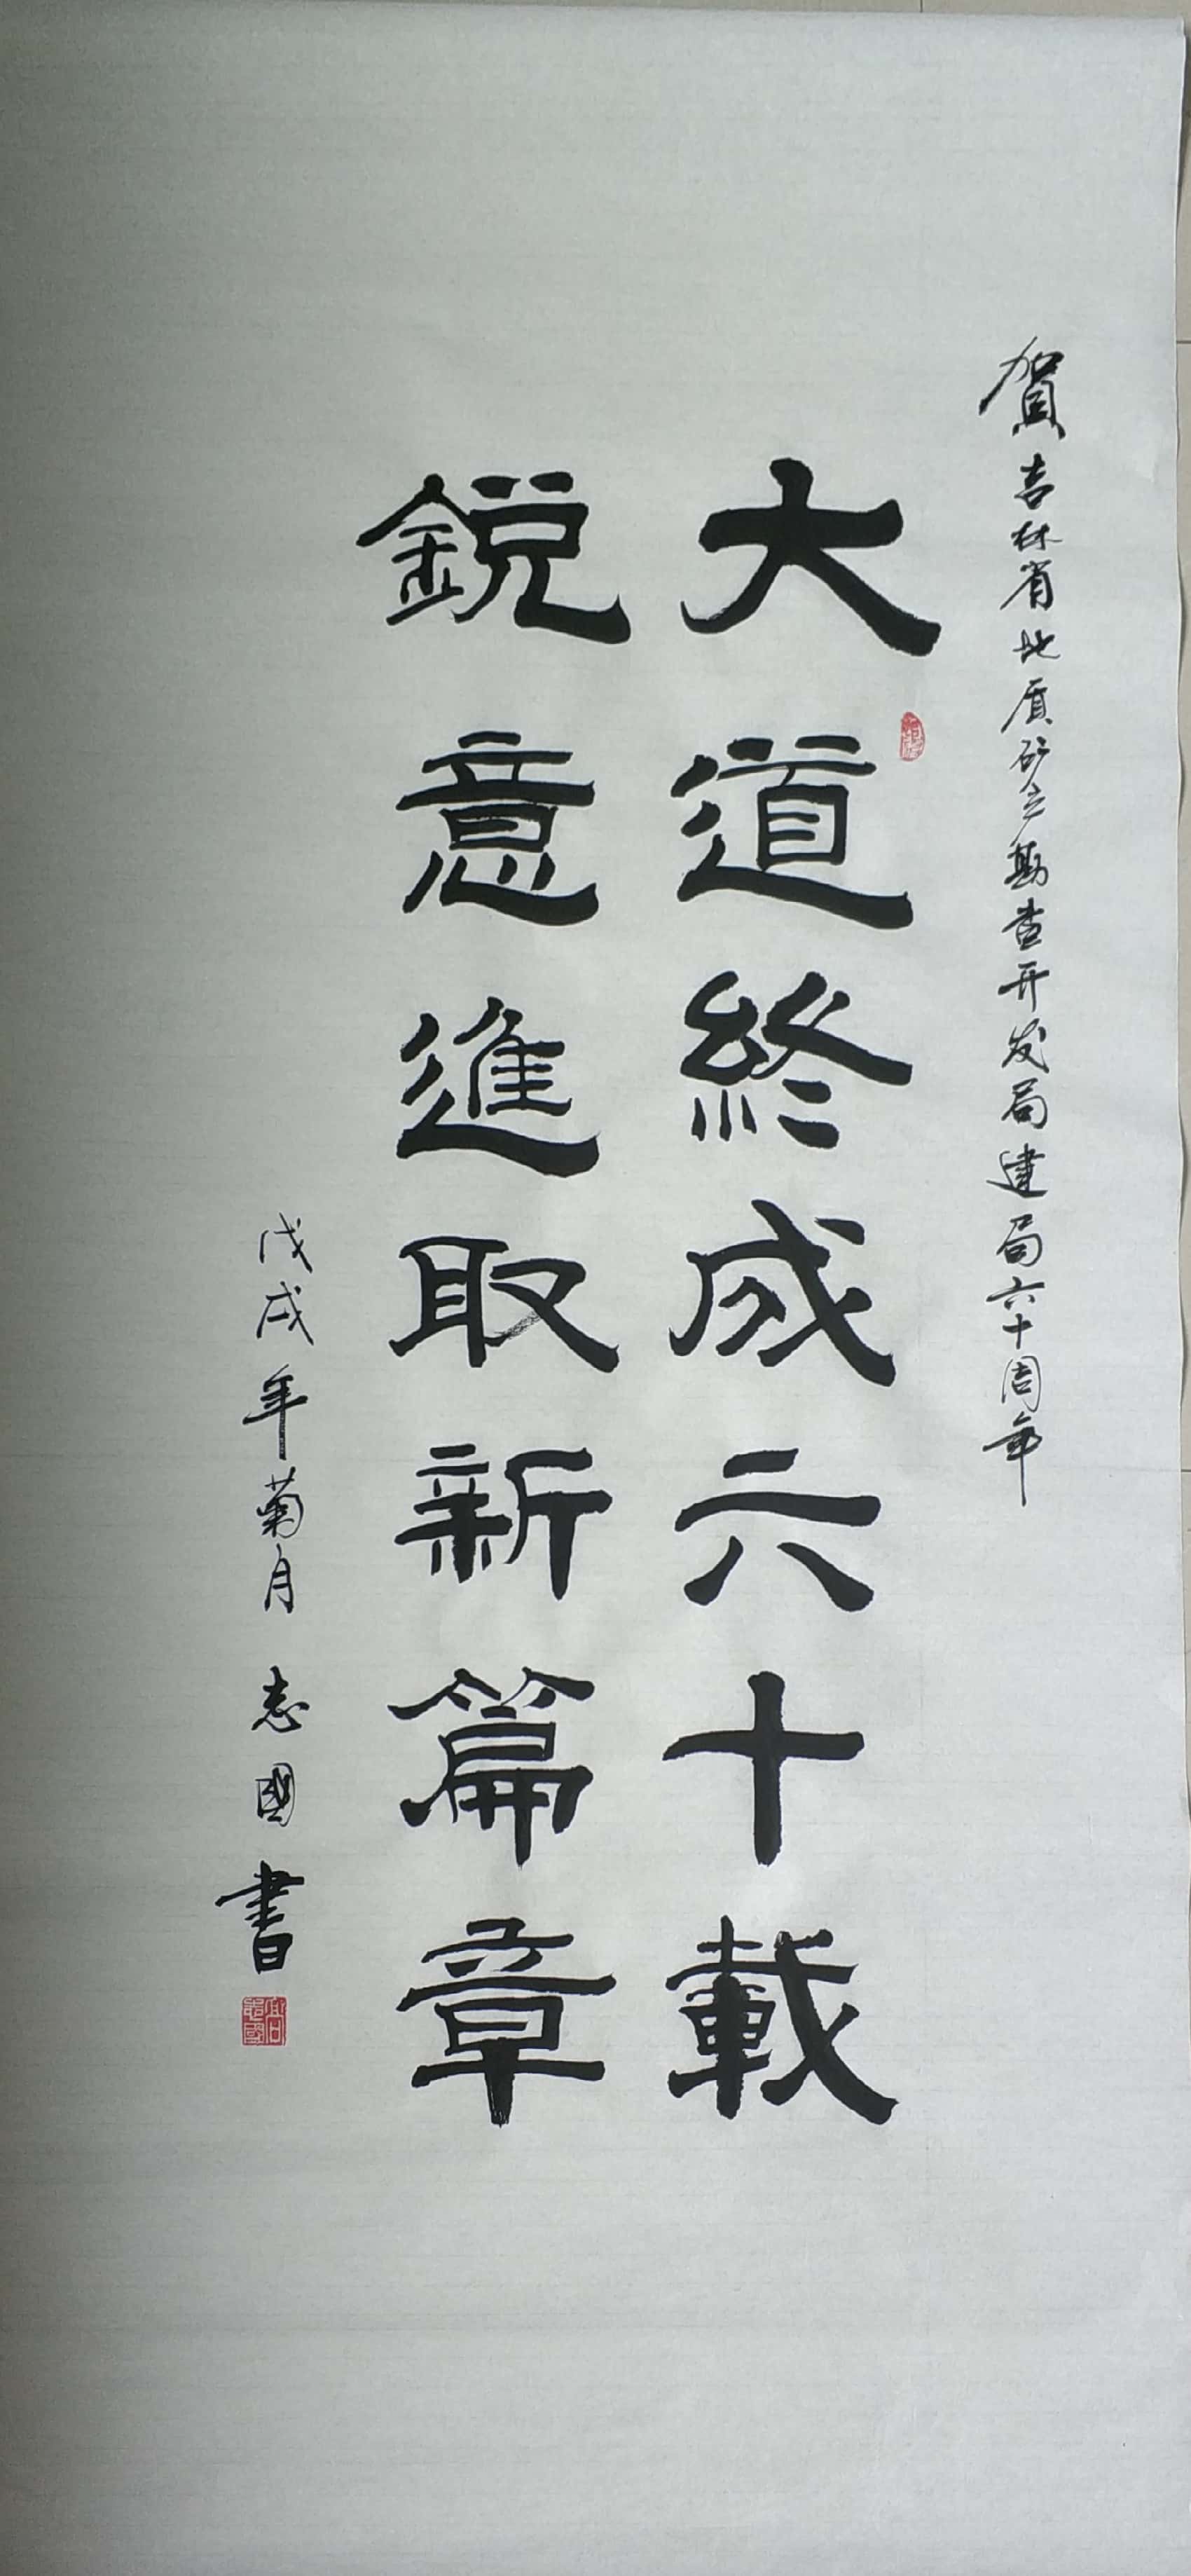 賀吉林省地质矿产勘查开发局建局六十周年
大道終成六十載
銳意進取新篇章
戊戌年菊月 志國書